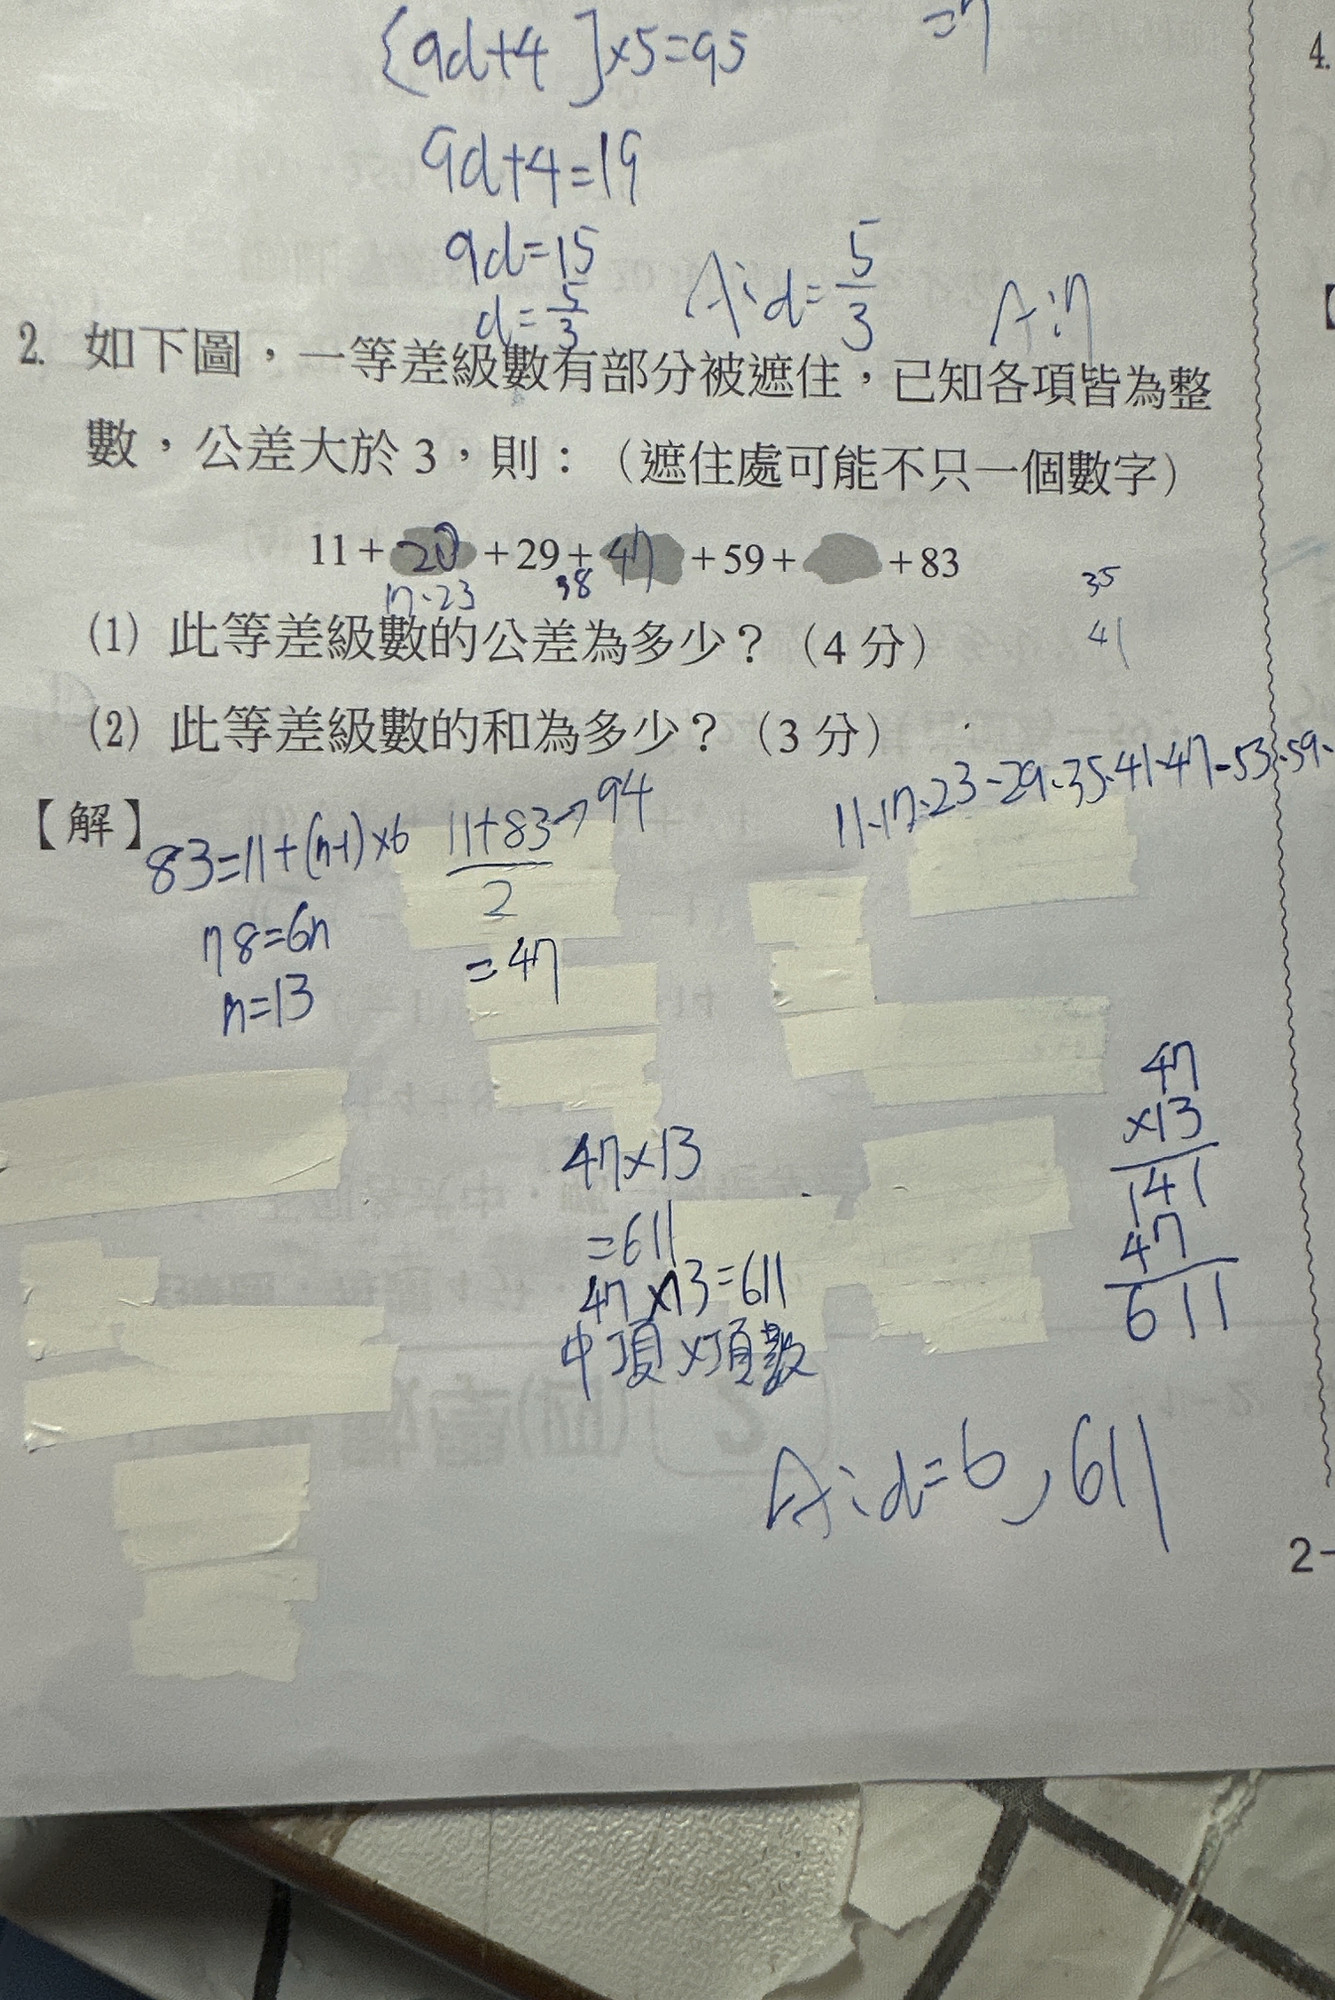 {9d+4]×5=95
=7
4.
9d+4=19
9d=15
d=5/3
A:d=5/3
A:7
2. 如下圖，一等差級數有部分被遮住，已知各項皆為整
數，公差大於 3，則：（遮住處可能不只一個數字）
11+20+29+47+59+ +83
17.23
38
35
(1) 此等差級數的公差為多少？（4 分）
41
(2) 此等差級數的和為多少？（3 分）
11.17.23-29.35.41.47-53.59.
【解】
83=11+(n-1)×6
11+83→94
2
78=6n
=47
n=13
47
×13
141
47
611
47×13
=611
47×13=611
中項×項數
A:d=6,611
2-